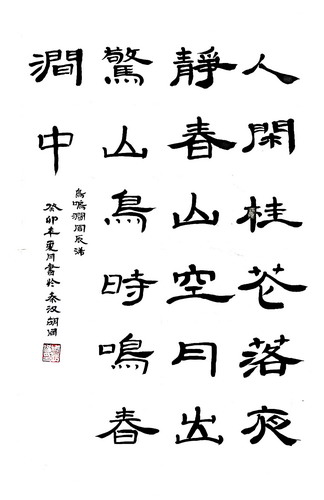 人閑桂花落夜
靜春山空月出
驚山鳥時鳴春
澗中
鳥鳴澗
癸卯年夏月書於秦汉胡同